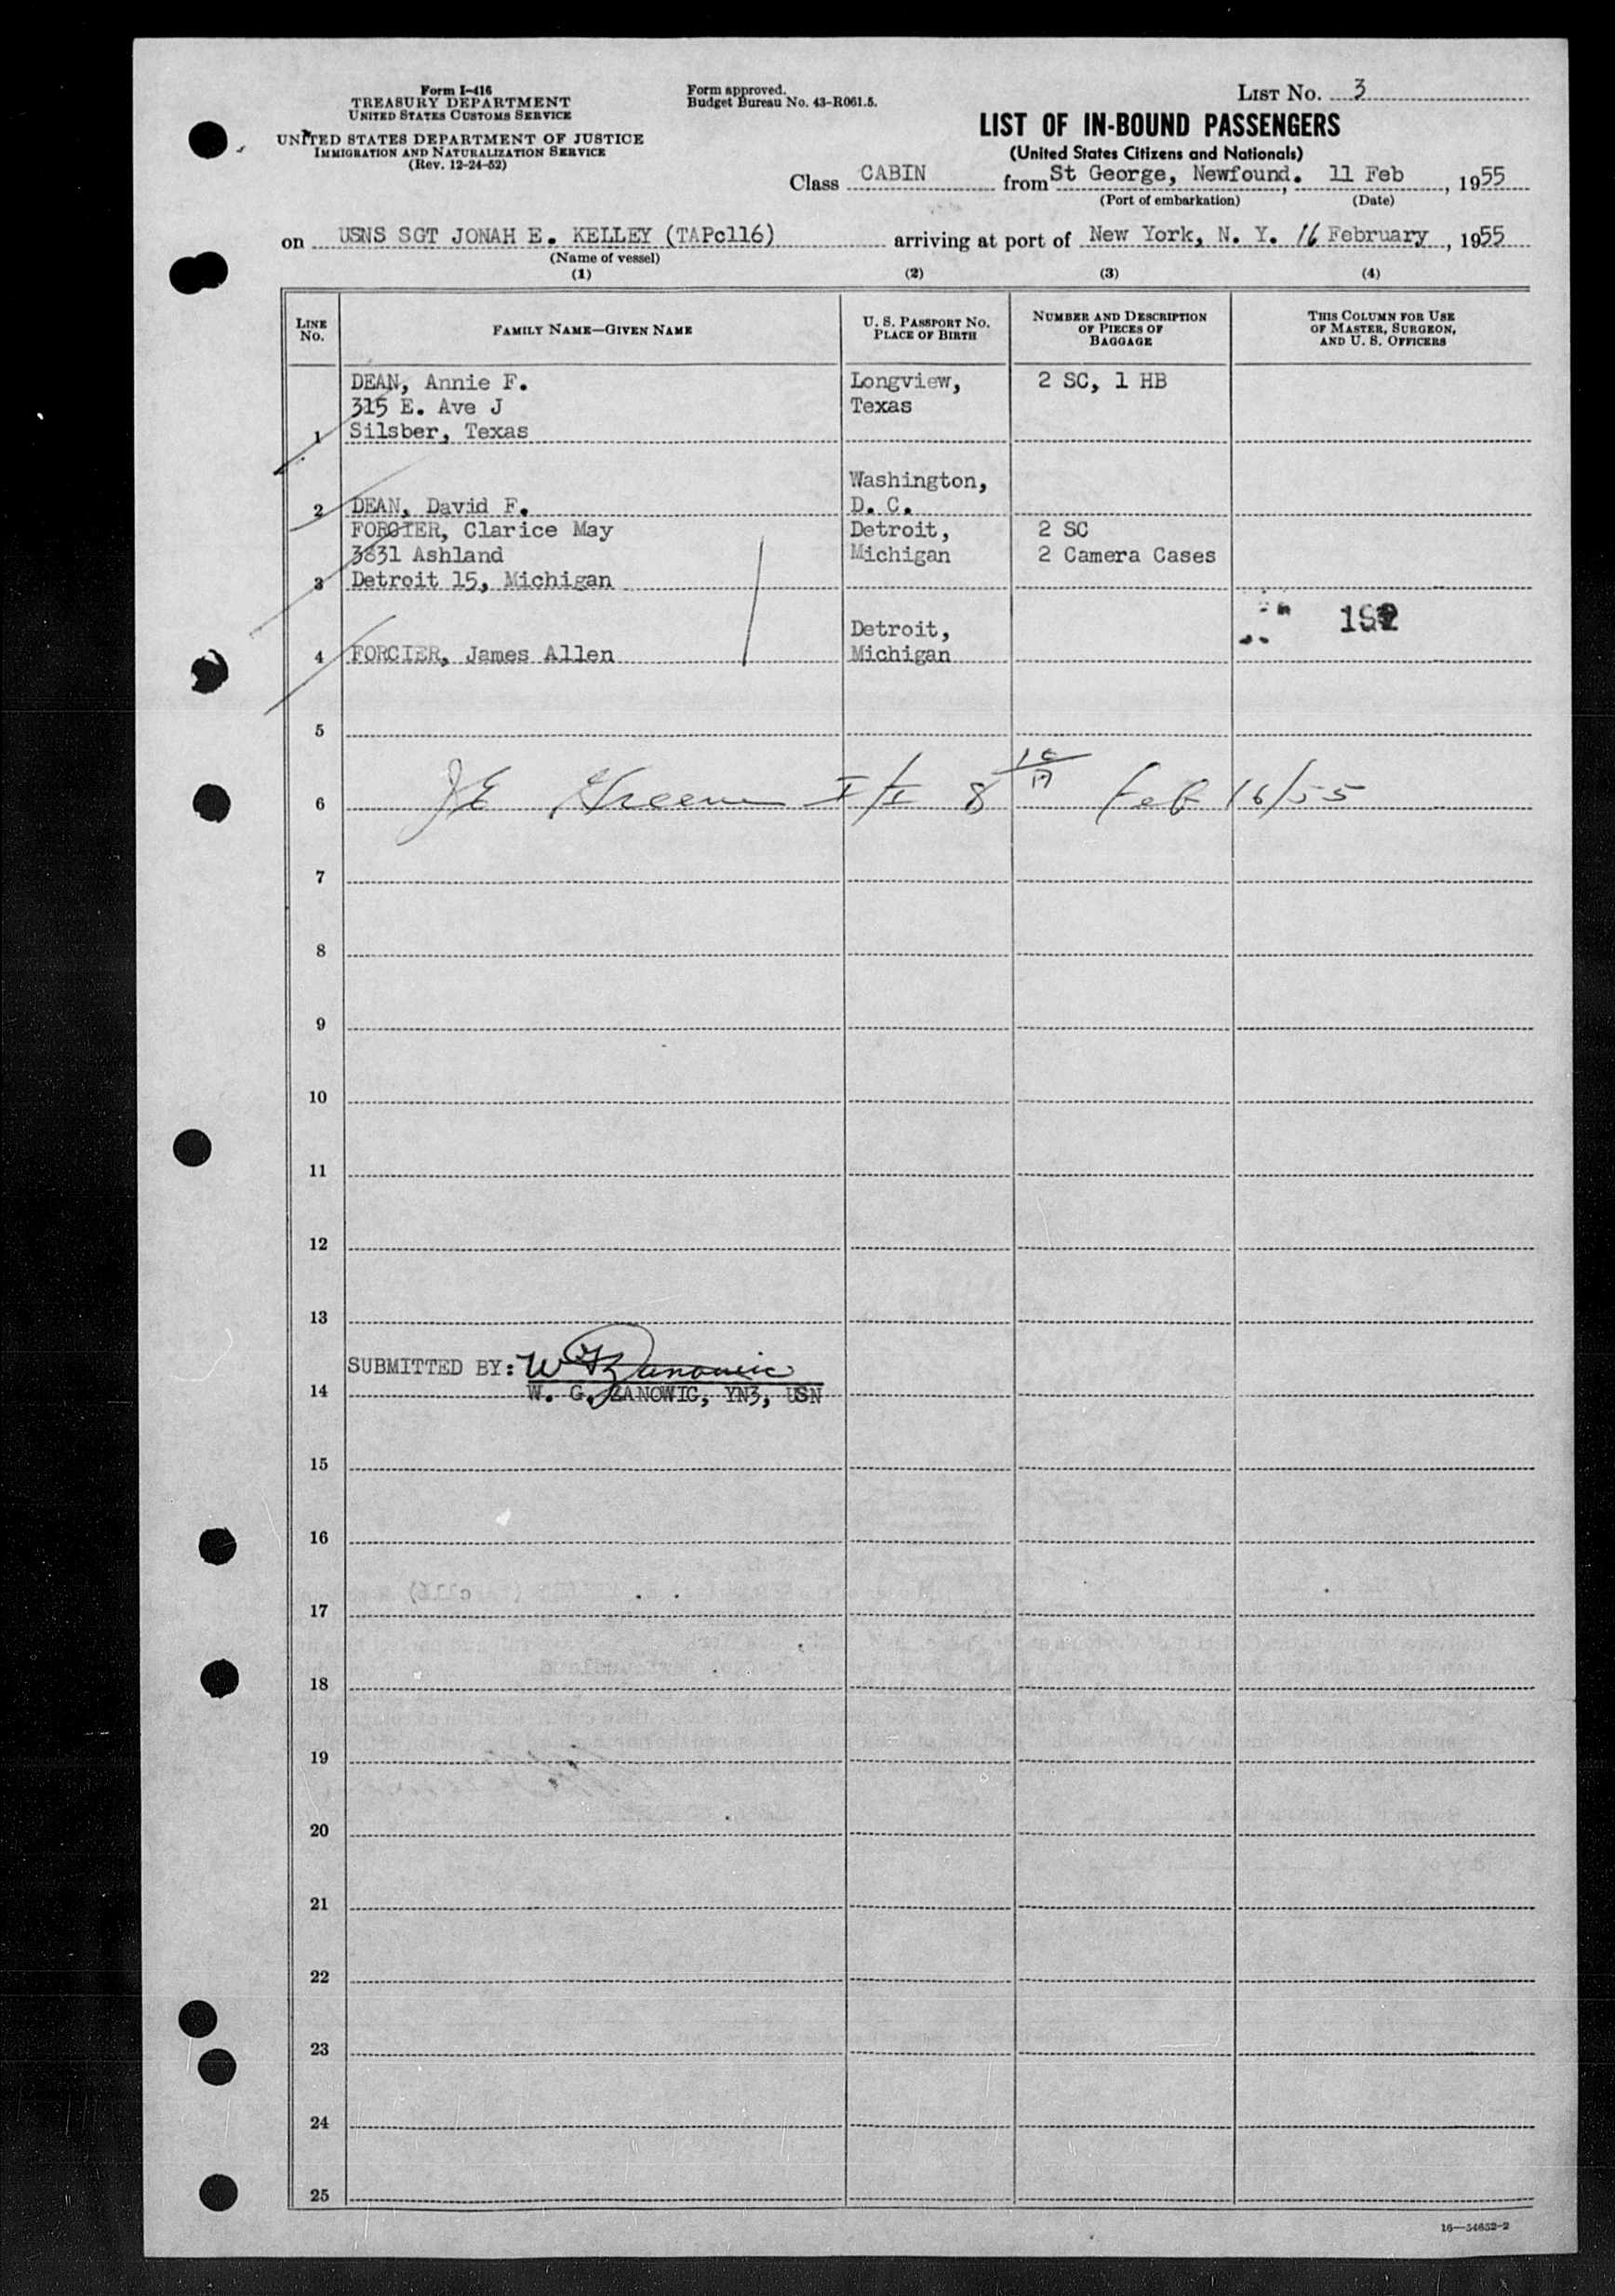 Form I-416
TREASURY DEPARTMENT
UNITED STATES CUSTOMS SERVICE
UNITED STATES DEPARTMENT OF JUSTICE
IMMIGRATION AND NATURALIZATION SERVICE
(Rev. 12-24-52)
Form approved.
Budget Bureau No. 43-R061.5.
LIST NO. 3
LIST OF IN-BOUND PASSENGERS
(United States Citizens and Nationals)
Class CABIN from St George, Newfound., 11 Feb, 1955
(Port of embarkation) (Date)
on USNS SGT JONAH E. KELLEY (TAPc116) arriving at port of New York, N. Y. 16 February, 1955
(Name of vessel)
(1) (2) (3) (4)
LINE NO. FAMILY NAME—GIVEN NAME U. S. PASSPORT NO. PLACE OF BIRTH NUMBER AND DESCRIPTION OF PIECES OF BAGGAGE THIS COLUMN FOR USE OF MASTER, SURGEON, AND U. S. OFFICERS
DEAN, Annie F. Longview, 2 SC, 1 HB
315 E. Ave J Texas
1 Silsber, Texas
Washington,
2 DEAN, David F. D. C.
FORCIER, Clarice May Detroit, 2 SC
3831 Ashland Michigan 2 Camera Cases
3 Detroit 15, Michigan
Detroit,
4 FORCIER, James Allen Michigan
5
6 JE Greene I/I 8 Feb 16/55
7
8
9
10
11
12
13
SUBMITTED BY:
14 W. G. ZANOWIC, YN3, USN
15
16
17
18
19
20
21
22
23
24
25
16—54652-2